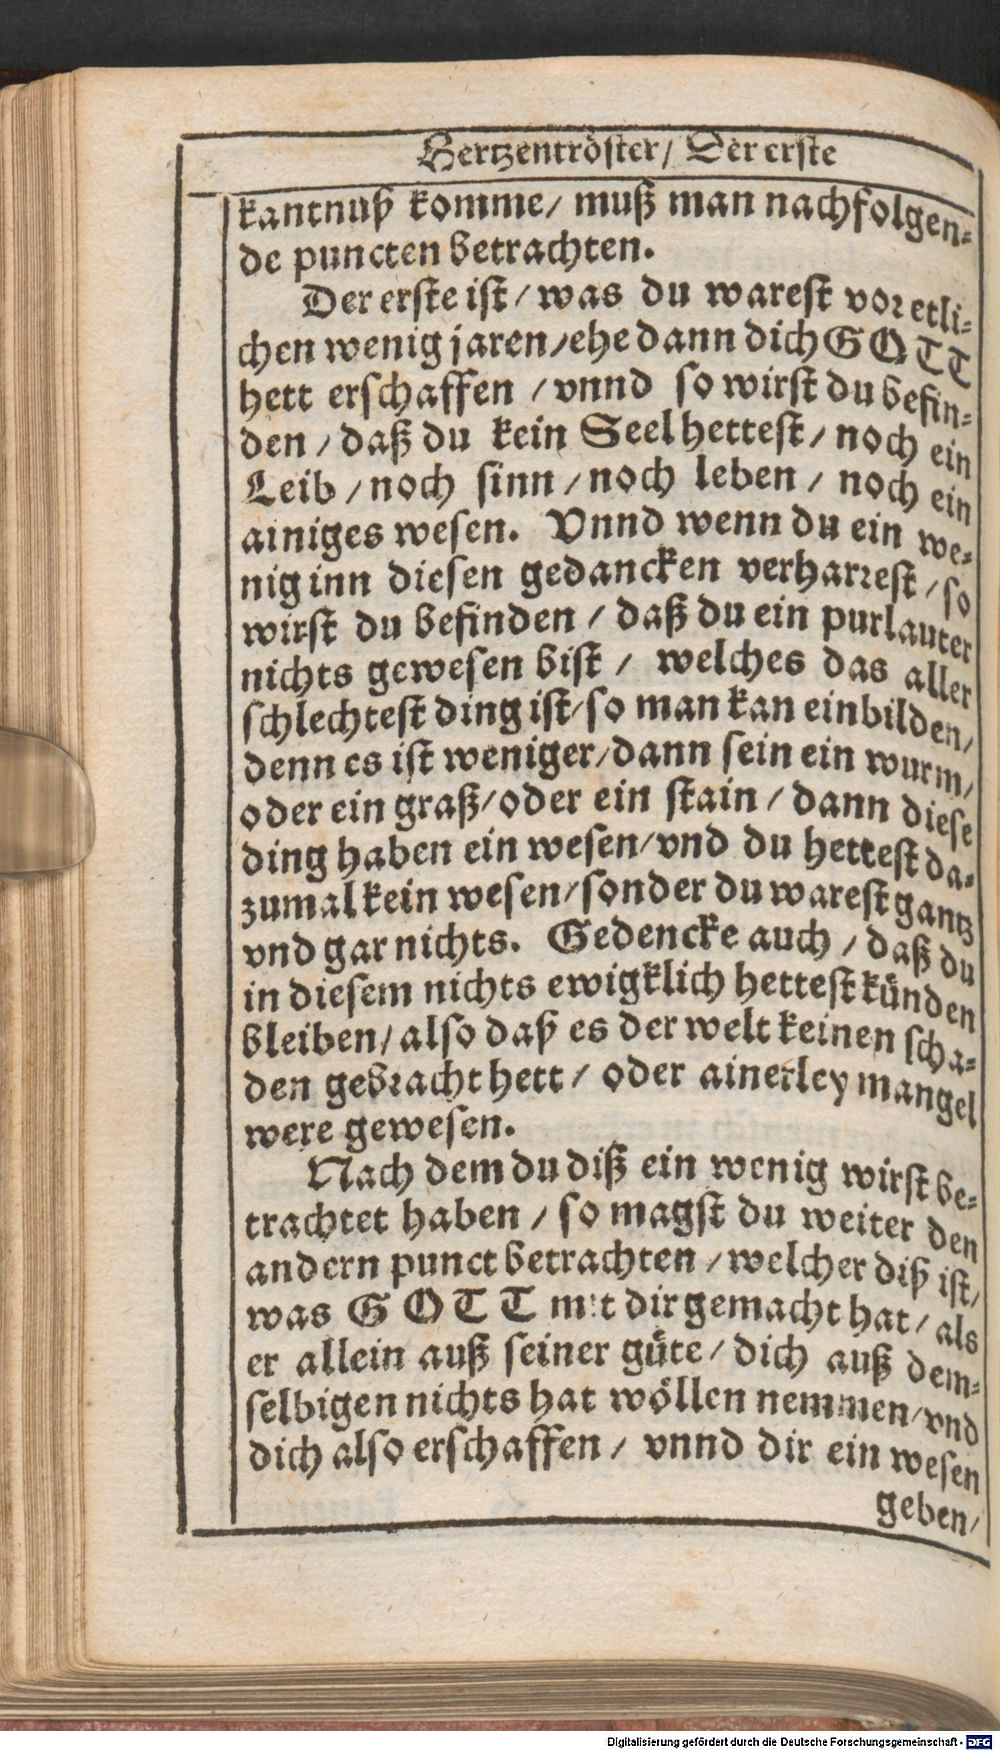 Hertzentröster/ Der erste
kantnuß komme/ muß man nachfolgen-
de puncten betrachten.
Der erste ist/ was du warest vor etli-
chen wenig jaren/ ehe dann dich GOTT
hett erschaffen/ vnnd so wirst du befin-
den/ daß du kein Seel hettest/ noch ein
Leib/ noch sinn/ noch leben/ noch ein
ainiges wesen. Vnnd wenn du ein we-
nig inn diesen gedancken verharrest/ so
wirst du befinden/ daß du ein purlauter
nichts gewesen bist/ welches das aller
schlechtest ding ist/ so man kan einbilden/
denn es ist weniger/ dann sein ein wurm/
oder ein graß/ oder ein stain/ dann diese
ding haben ein wesen/ vnd du hettest da-
zumal kein wesen/ sonder du warest gantz
vnd gar nichts. Gedencke auch/ daß du
in diesem nichts ewigklich hettest künden
bleiben/ also daß es der welt keinen scha-
den gebracht hett/ oder ainerley mangel
were gewesen.
Nach dem du diß ein wenig wirst be-
trachtet haben/ so magst du weiter den
andern punct betrachten/ welcher diß ist/
was GOTT mit dir gemacht hat/ als
er allein auß seiner güte/ dich auß dem-
selbigen nichts hat wöllen nemmen/ vnd
dich also erschaffen/ vnnd dir ein wesen
geben/
Digitalisierung gefördert durch die Deutsche Forschungsgemeinschaft - DFG